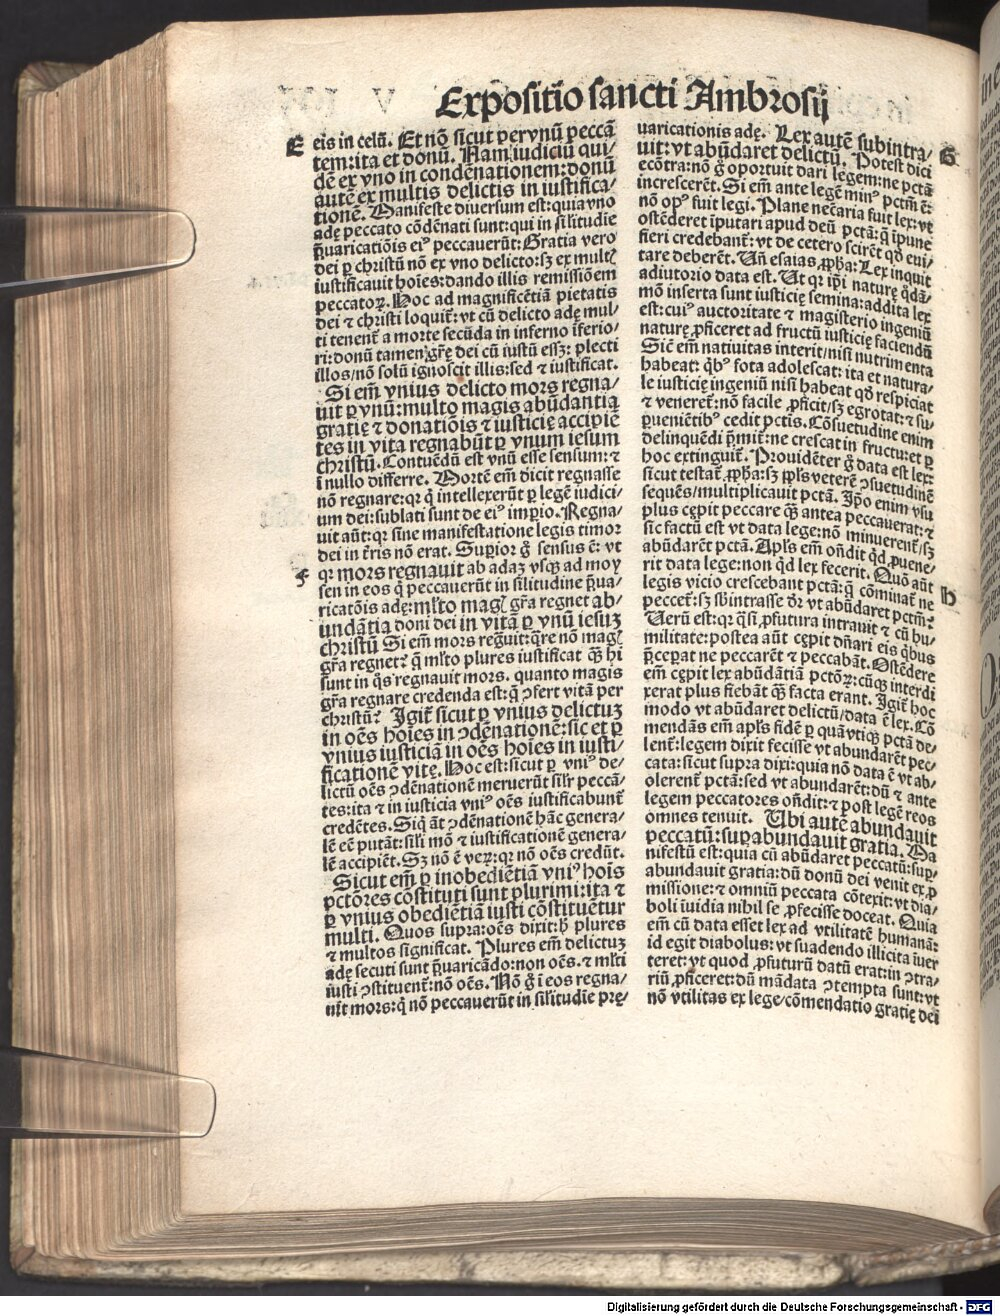 Expositio sancti Ambrosij
E
eis in celũ. Et nõ sicut per vnũ peccã
tem: ita et donũ. Nam iudiciũ qui/
dẽ ex vno in condẽnationem: donũ
autẽ ex multis delictis in iustifica/
tionẽ. Manifeste diuersum est: quia vno
adę peccato cõdẽnati sunt: qui in sĩlitudie
p̃uaricatiõis eiꝰ peccauerũt: Gratia vero
dei ꝑ christũ nõ ex vno delicto: sꝫ ex multꝭ
iustificauit hoĩes: dando illis remissiõem
peccatoꝝ. Hoc ad magnificẽtiã pietatis
dei ⁊ christi loquit̃: vt cũ delicto adę mul/
ti tenent̃ a morte secũda in inferno ĩferio/
ri: donũ tamen gr̃ę dei cũ iustũ essꝫ: plecti
illos/ nõ solũ ignoscit illis: sed ⁊ iustificat.
Si em̃ vnius delicto mors regna/
uit ꝑ vnũ: multo magis abũdantiã
gratię ⁊ donatiõis ⁊ iusticię accipiẽ
tes in vita regnabũt ꝑ vnum iesum
christũ. Contuẽdũ est vnũ esse sensum: ⁊
ĩ nullo differre. Mortẽ em̃ dicit regnasse
nõ regnare: qꝛ q̃ intellexerũt ꝑ legẽ iudici/
um dei: sublati sunt de eiꝰ impio. Regna/
uit aũt: qꝛ sine manifestatione legis timor
dei in t̃ris nõ erat. Suꝑior g̊ sensus ẽ: vt
F
qꝛ mors regnauit ab adaꝫ vsqꝫ ad moy
sen in eos q̃ peccauerũt in sĩlitudine p̃ua/
ricatõis adę: ml̃to magꝭ gr̃a regnet ab/
undãtia doni dei in vitã ꝑ vnũ iesuꝫ
christũ Si em̃ mors regũit: q̃re nõ magꝭ
gr̃a regnet? q̃ ml̃to plures iustificat q̃ꝫ hi
sunt in q̃s regnauit mors. quanto magis
gr̃a regnare credenda est: q̃ ꝯfert vitã per
christũ? Igit̃ sicut ꝑ vnius delictuꝫ
in oẽs hoĩes in ꝯdẽnationẽ: sic et ꝑ
vnius iusticiã in oẽs hoĩes in iusti/
ficationẽ vitę. Hoc est: sicut ꝑ vniꝰ de/
lictũ oẽs ꝯdẽnationẽ meruerũt sil̃r peccã/
tes: ita ⁊ in iusticia vniꝰ oẽs iustificabunt̃
credẽtes. Siq̃ ãt ꝯdẽnationẽ hãc genera/
lẽ eẽ putãt: sĩli mõ ⁊ iustificationẽ genera/
lẽ accipiẽt. Sꝫ nõ ẽ veꝝ: qꝛ nõ oẽs credũt.
Sicut em̃ ꝑ inobediẽtiã vniꝰ hoĩs
pctõres cõstituti sunt plurimi: ita ⁊
ꝑ vnius obediẽtiã iusti cõstituẽtur
multi. Quos supra: oẽs dixit: h̃ plures
⁊ multos significat. Plures em̃ delictuꝫ
adę secuti sunt p̃uaricãdo: non oẽs. ⁊ ml̃ti
iusti ꝯstituent̃: nõ oẽs. Nõ g̊ ĩ eos regna/
uit mors: q̃ nõ peccauerũt in sĩlitudie prę/
uaricationis adę. Lex autẽ subintra/
G
uit: vt abũdaret delictũ. Potest dici
ecõtra: nõ g̊ oportuit dari legem: ne pctã
increscerẽt. Si em̃ ante legẽ minꝰ pctm̃ ẽ:
nõ opꝰ fuit legi. Plane neccẽaria fuit lex: vt
ostẽderet ĩputari apud deũ pctã: q̃ ĩpune
fieri credebant̃: vt de cetero scirẽt qď eui/
tare deberẽt. Vñ esaias ꝓp̃ha: Lex inquit
adiutorio data est. Ut qꝛ ip̃i naturę q̃dã/
mõ inserta sunt iusticię semina: addita lex
est: cuiꝰ auctoritate ⁊ magisterio ingeniũ
naturę ꝓficeret ad fructũ iusticię faciendũ
Sic̃ em̃ natiuitas interit/ nisi nutrimenta
habeat: q̃bꝰ fota adolescat: ita et natura/
le iusticię ingeniũ nisi habeat qď respiciat
⁊ veneret̃: nõ facile ꝓficit/ sꝫ egrotat: ⁊ su/
ꝑueniẽtibꝰ cedit pctis. Cõsuetudine enim
delinquẽdi p̃mit̃: ne crescat in fructu: et ꝑ
hoc extinguit̃. Prouidẽter g̊ data est lex:
sicut testat̃ ꝓp̃ha: sꝫ ppl̃s veterẽ ꝯsuetudinẽ
sequẽs/ multiplicauit pctã. Ip̃o enim vsu
plus cępit peccare q̃ꝫ antea peccauerat: ⁊
sic factũ est vt data lege: nõ minuerent̃/ sꝫ
abũdarẽt pctã. Apl̃s em̃ oñdit qď ꝓuene/
rit data lege: non qď lex fecerit. Quõ aũt
H
legis vicio crescebant pctã: q̃ cõminat̃ ne
peccet̃: sꝫ sb̃intrasse dr̃ vt abũdaret pctm̃?
Verũ est: qꝛ q̃si ꝓfutura intrauit ⁊ cũ hu/
militate: postea aũt cępit dñari eis q̃bus
p̃ceperat ne peccarẽt ⁊ peccabãt. Ostẽdere
em̃ cępit lex abũdãtiã pctõꝝ: cũqꝫ interdi
xerat plus fiebãt q̃ꝫ facta erant. Igit̃ hoc
modo vt abũdaret delictũ/ data ẽ lex. Cõ
mendãs em̃ apl̃s fidẽ ꝑ quã vtiqꝫ pctã de/
lent̃: legem dixit fecisse vt abundarẽt pec/
cata: sicut supra dixi: quia nõ data ẽ vt ab/
olerent̃ pctã: sed vt abundarẽt: dũ ⁊ ante
legem peccatores oñdit: ⁊ post legẽ reos
omnes tenuit. Ubi autẽ abundauit
peccatũ: suꝑabundauit gratia. Ma
nifestũ est: quia cũ abũdaret peccatũ: suꝑ/
abundauit gratia: dũ donũ dei venit ex ꝓ
missione: ⁊ omniũ peccata cõtexit: vt dia/
boli ĩuidia nihil se ꝓfecisse doceat. Quia
em̃ cũ data esset lex ad vtilitatẽ humanã:
id egit diabolus: vt suadendo illicita ĩuer
teret: vt quod ꝓfuturũ datũ erat: in ꝯtra/
riũ ꝓficeret: dũ mãdata ꝯtempta sunt: vt
nõ vtilitas ex lege/ cõmendatio gratię dei
Digitalisierung gefördert durch die Deutsche Forschungsgemeinschaft - DFG